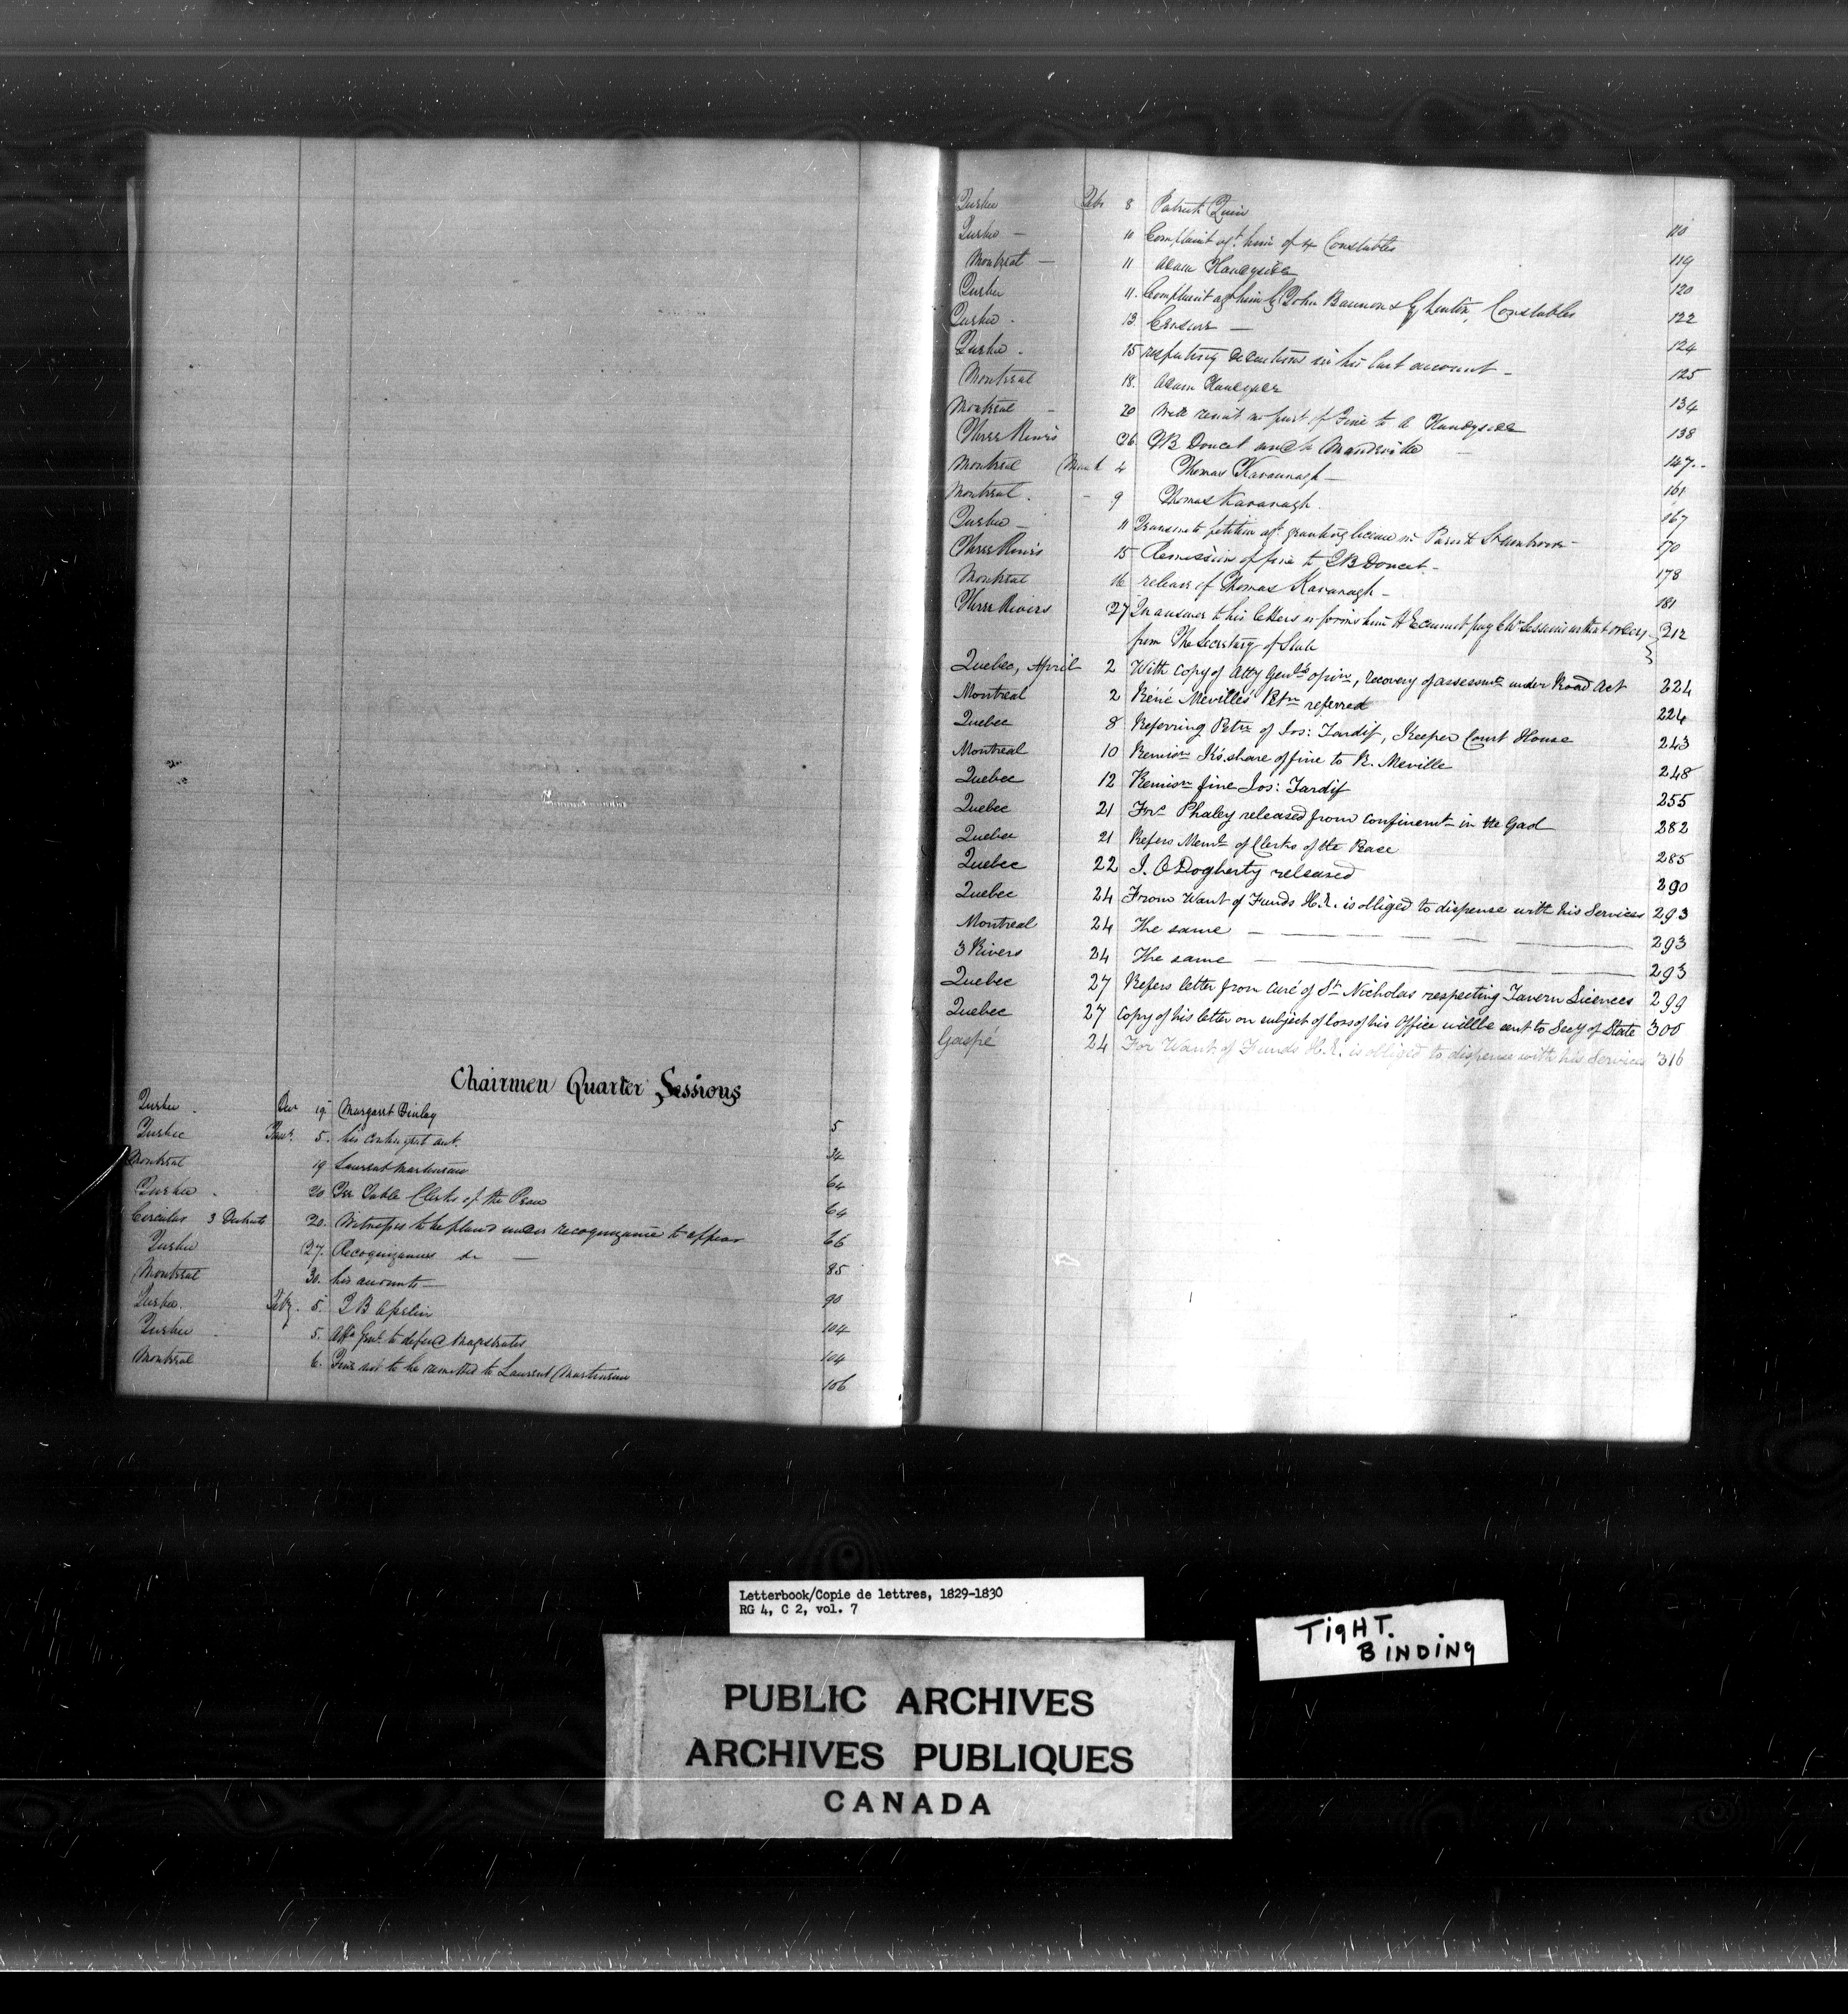 Chairmen Quarter Sessions
Quebec . Decr 19. Margaret Finlay 5
Quebec Jany. 5. his contingent acct. 34
Montreal 19 Laurent Martineau 64
Quebec . 20 Fee Table Clerks of the Peace 64
Circular 3 Districts 20. Witnesses to be placed under recognizance to appear 66
Quebec 27. Recognizances &c — 85
Montreal 30. his accounts — 90
Quebec. Feby. 5. J B 104
Quebec 5. Atty Genl. to defend Magistrates 104
Montreal 6. Fine not to be remitted to Laurent Martineau 106
Quebec Feb. 8 Patrick Quin 110
Quebec — 10 Complaint agt. him of 4 Constables 119
Montreal — 11 Adam Handyside 120
Quebec 11. Complaint agt him by John Bannon & G. Constables 122
Quebec . 13. Census — 124
Quebec . 15 respecting deductions in his last account — 125
Montreal 18. Adam Handyside 134
Montreal — 20 Will remit no part of Fine to A Handyside 138
Three Rivers 26. J B Doucet and Mandeville — 147..
Montreal March 4 Thomas Kavannagh — 161
Montreal. - 9 Thomas Kavanagh. 167
Quebec — 11 Transmits petition agt. granting license in Parish 170
Three Rivers 15 Remission of fine to J B Doucet. 178
Montreal 16 release of Thomas Kavanagh — 181
Three Rivers 27 In answer to his letters informs him H E cannot pay Sessions without orders 212
from The Secretary of State
Quebec, April 2 With Copy of Atty Genls opinn, recovery of assessmts under Road Act 224
Montreal 2 Réné Mevilles' Petn referred 224
Quebec 8 Referring Petn of Jos: Tardif, Keeper Court House 243
Montreal 10 Remisn K's. share of fine to R. Meville 248
Quebec 12 Remisn fine Jos: Tardif 255
Quebec 21 Frs Phaley released from confinemt in the Gaol 282
Quebec 21 Refers Meml of Clerks of the Peace 285
Quebec 22 J. O'Dogherty released 290
Quebec 24 From Want of Funds H.E. is obliged to dispense with his Services 293
Montreal 24 The same — 293
3 Rivers 24 The same — 293
Quebec 27 Refers letter from Curé of St Nicholas respecting Tavern Licences 299
Quebec 27 Copy of his letter on subject of loss of his Office will be sent to Secy of State 300
Gaspé 24 For Want of Funds H.E. is obliged to dispense with his Services 316
Letterbook/Copie de lettres, 1829-1830
RG 4, C 2, vol. 7
TIGHT.
BINDING
PUBLIC ARCHIVES
ARCHIVES PUBLIQUES
CANADA